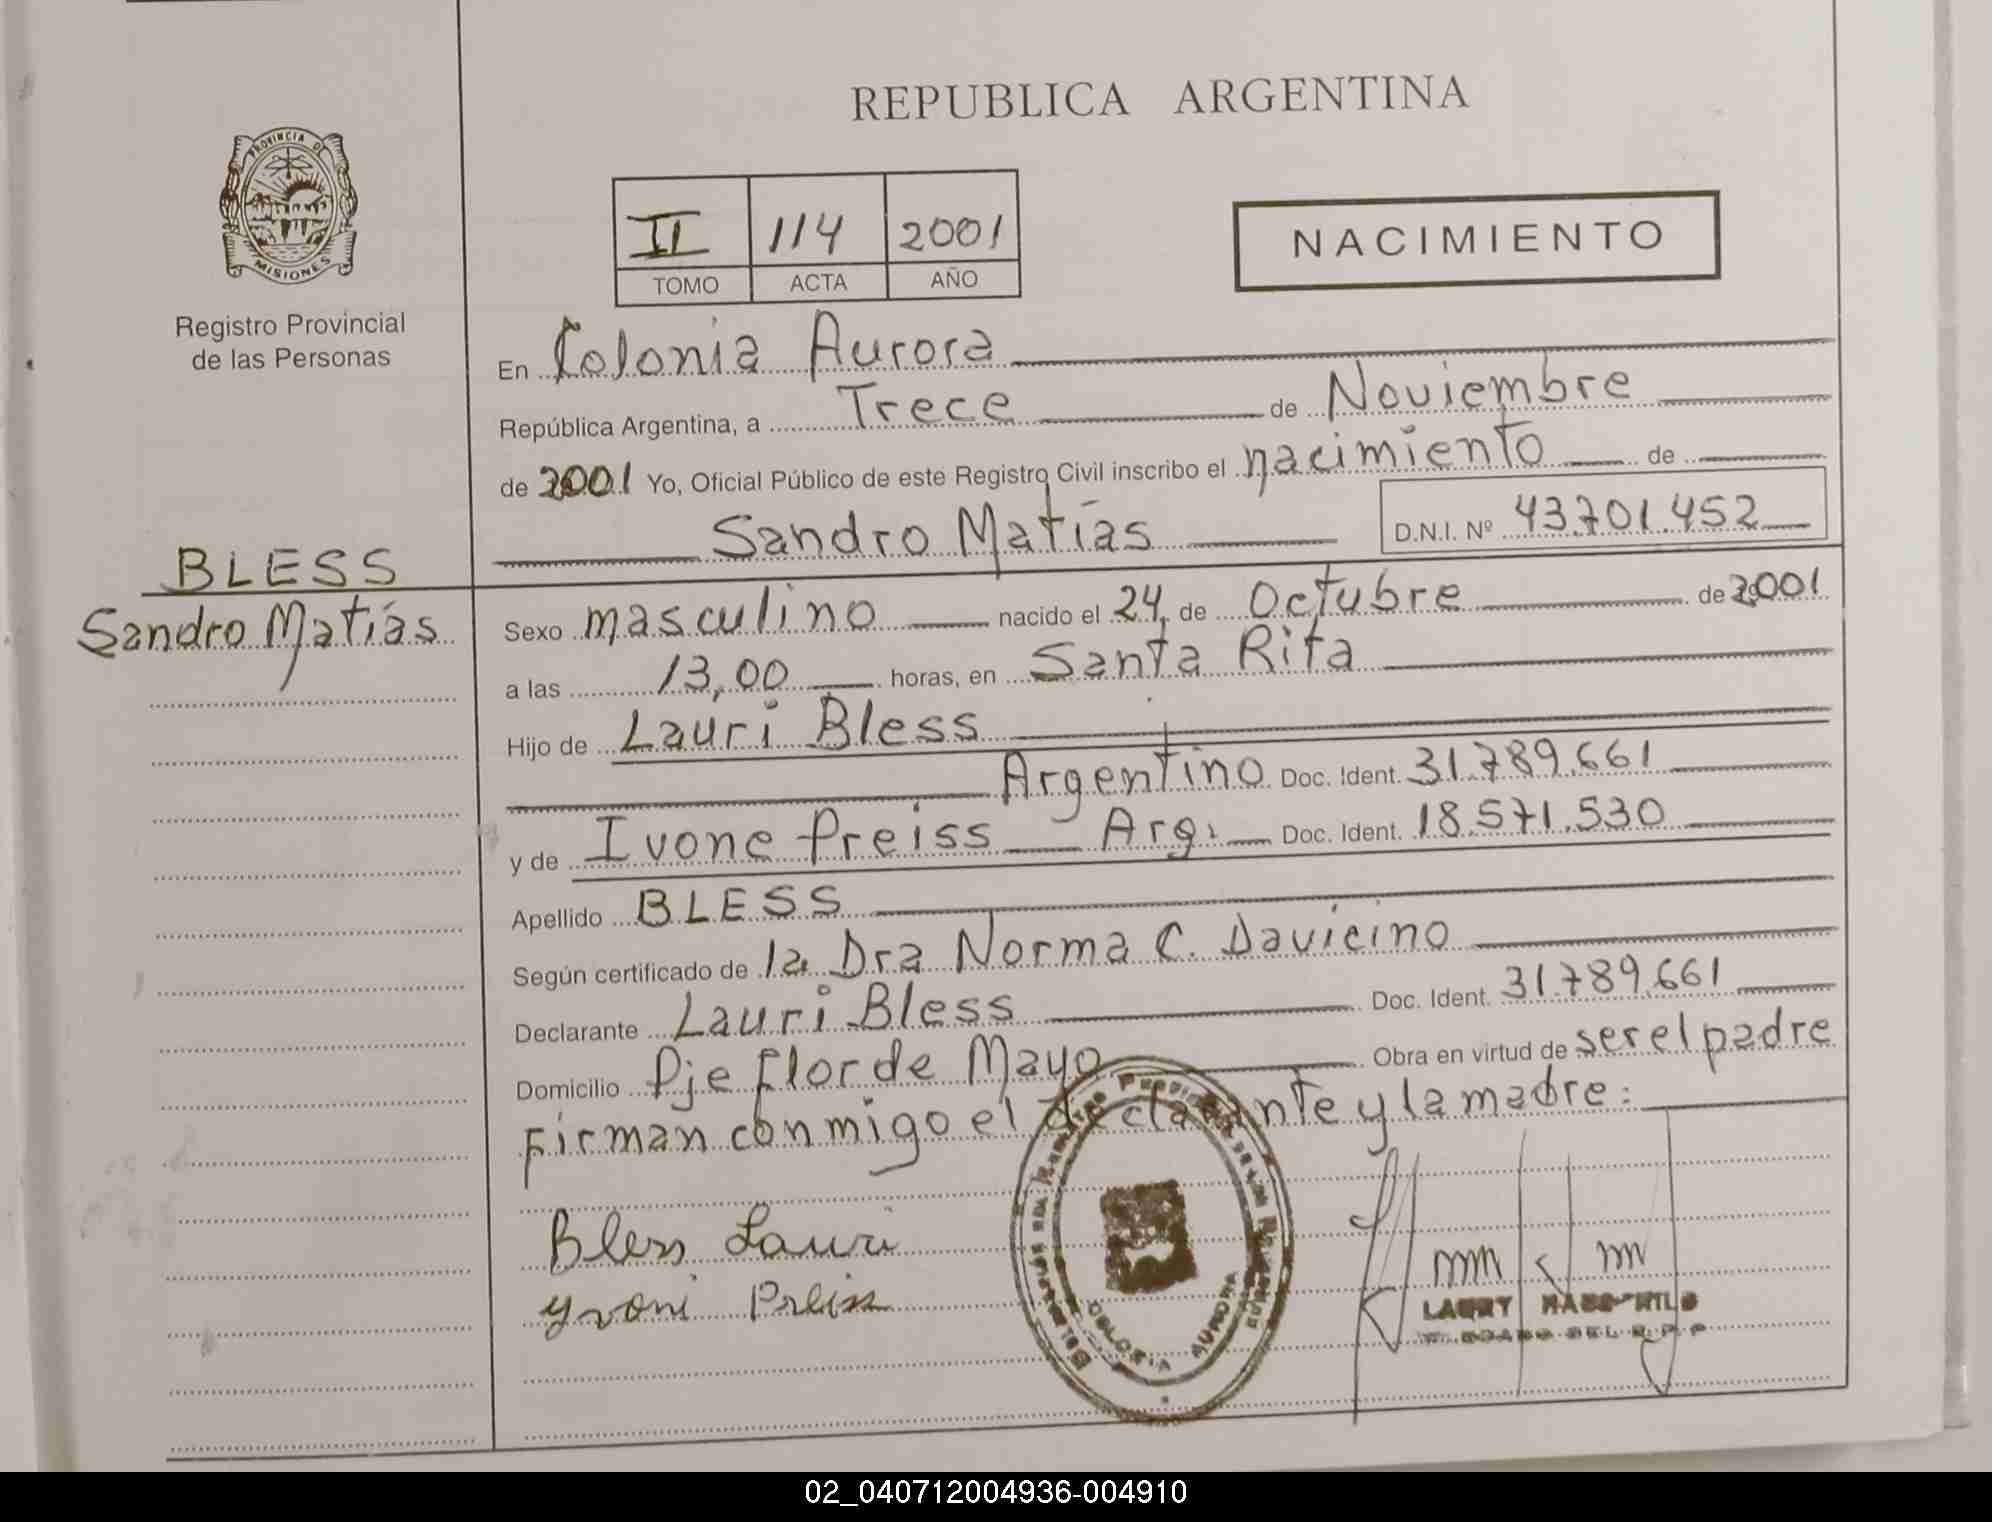 REPUBLICA ARGENTINA
PROVINCIA DE
MISIONES
Registro Provincial
de las Personas
II 114 2001
TOMO ACTA AÑO
NACIMIENTO
En Colonia Aurora
República Argentina, a Trece de Noviembre
de 2001 Yo, Oficial Público de este Registro Civil inscribo el nacimiento de
Sandro Matías D.N.I. Nº 43.701.452
BLESS
Sandro Matías
Sexo masculino nacido el 24 de Octubre de 2001
a las 13,00 horas, en Santa Rita
Hijo de Lauri Bless
Argentino Doc. Ident. 31.789.661
y de Ivone Preiss Arg. Doc. Ident. 18.571.530
Apellido BLESS
Según certificado de la Dra Norma C. Davicino
Declarante Lauri Bless Doc. Ident. 31.789.661
Domicilio Pje Flor de Mayo Obra en virtud de ser el padre
Firman conmigo el declarante y la madre:
Bless Lauri
Yvoni Preiss
COLONIA AURORA
LAURY
02_040712004936-004910